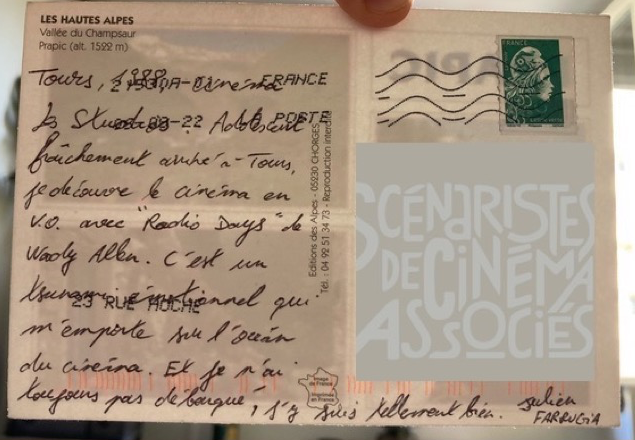 LES HAUTES ALPES
Vallée du Champsaur
Prapic (alt. 1522 m)
FRANCE
Tours, 1988, cinéma
FRANCE
Les Studios. Adolescent
-03-22 LA POSTE
fraîchement arrivé à Tours,
je découvre le cinéma en
V.O. avec "Radio Days" de
Woody Allen. C'est un
tsunami émotionnel qui
23 RUE HOCHE
m'emporte sur l'océan
du cinéma. Et je n'ai
toujours pas de barque, j'y suis tellement bien. Julien
FARRUGIA
Editions des Alpes - 05230 CHORGES
Tél. : 04 92 51 34 73 - Reproduction interdite
Image
de France
Imprimée
en France
SCÉNARISTES
DE CINÉMA
ASSOCIÉS